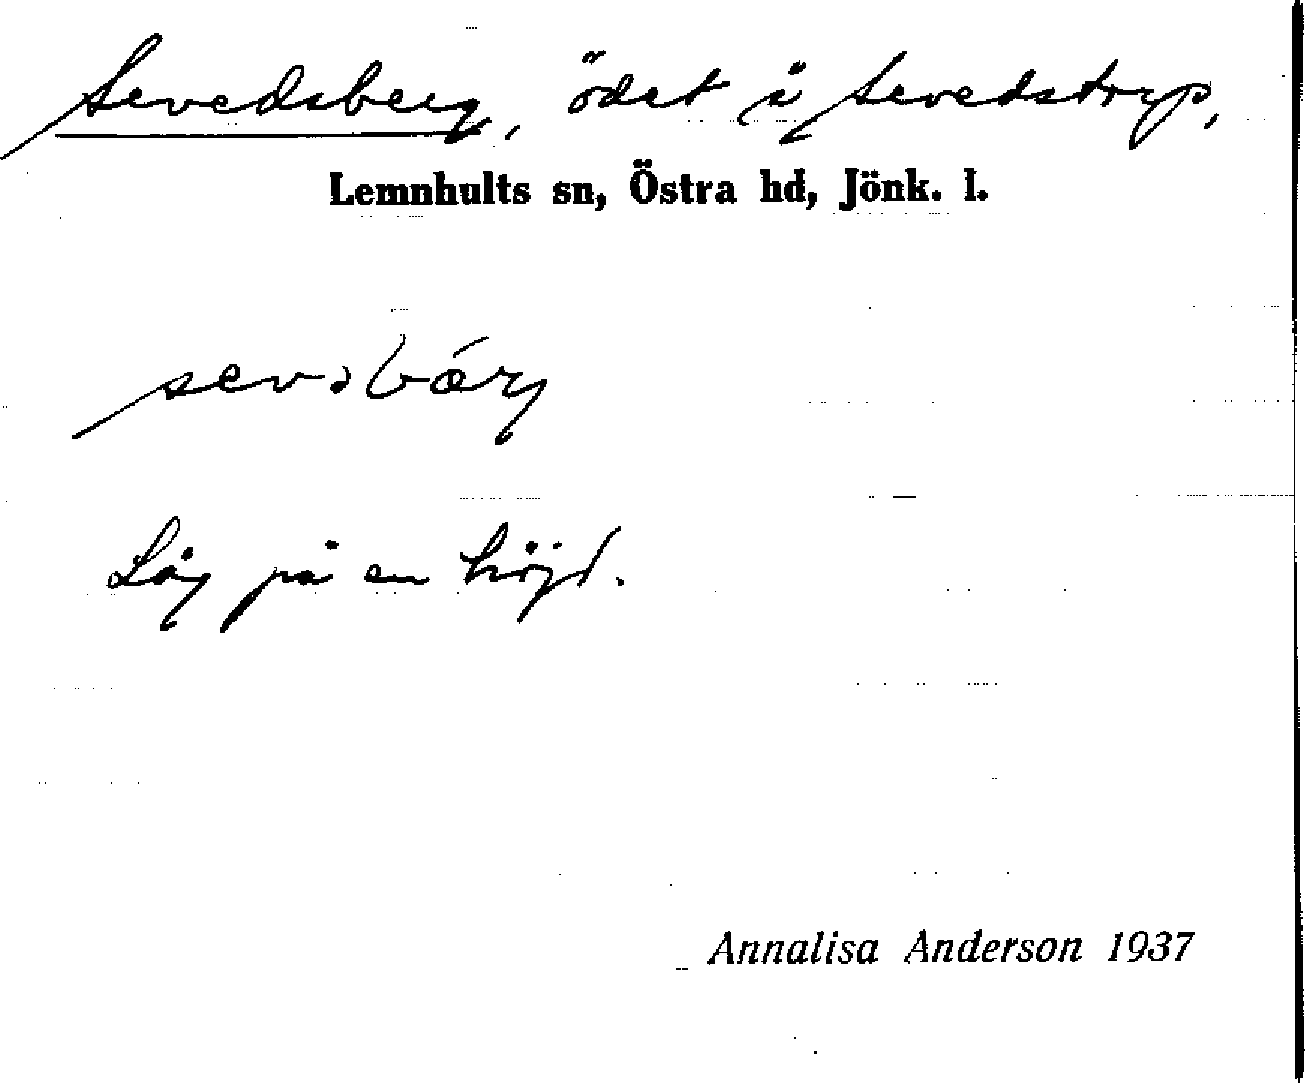 Sevedsberg, ödet i Sevedstorp,
Lemnhults sn, Östra hd, Jönk. l.
Låg på en höjd.
Annalisa Anderson 1937